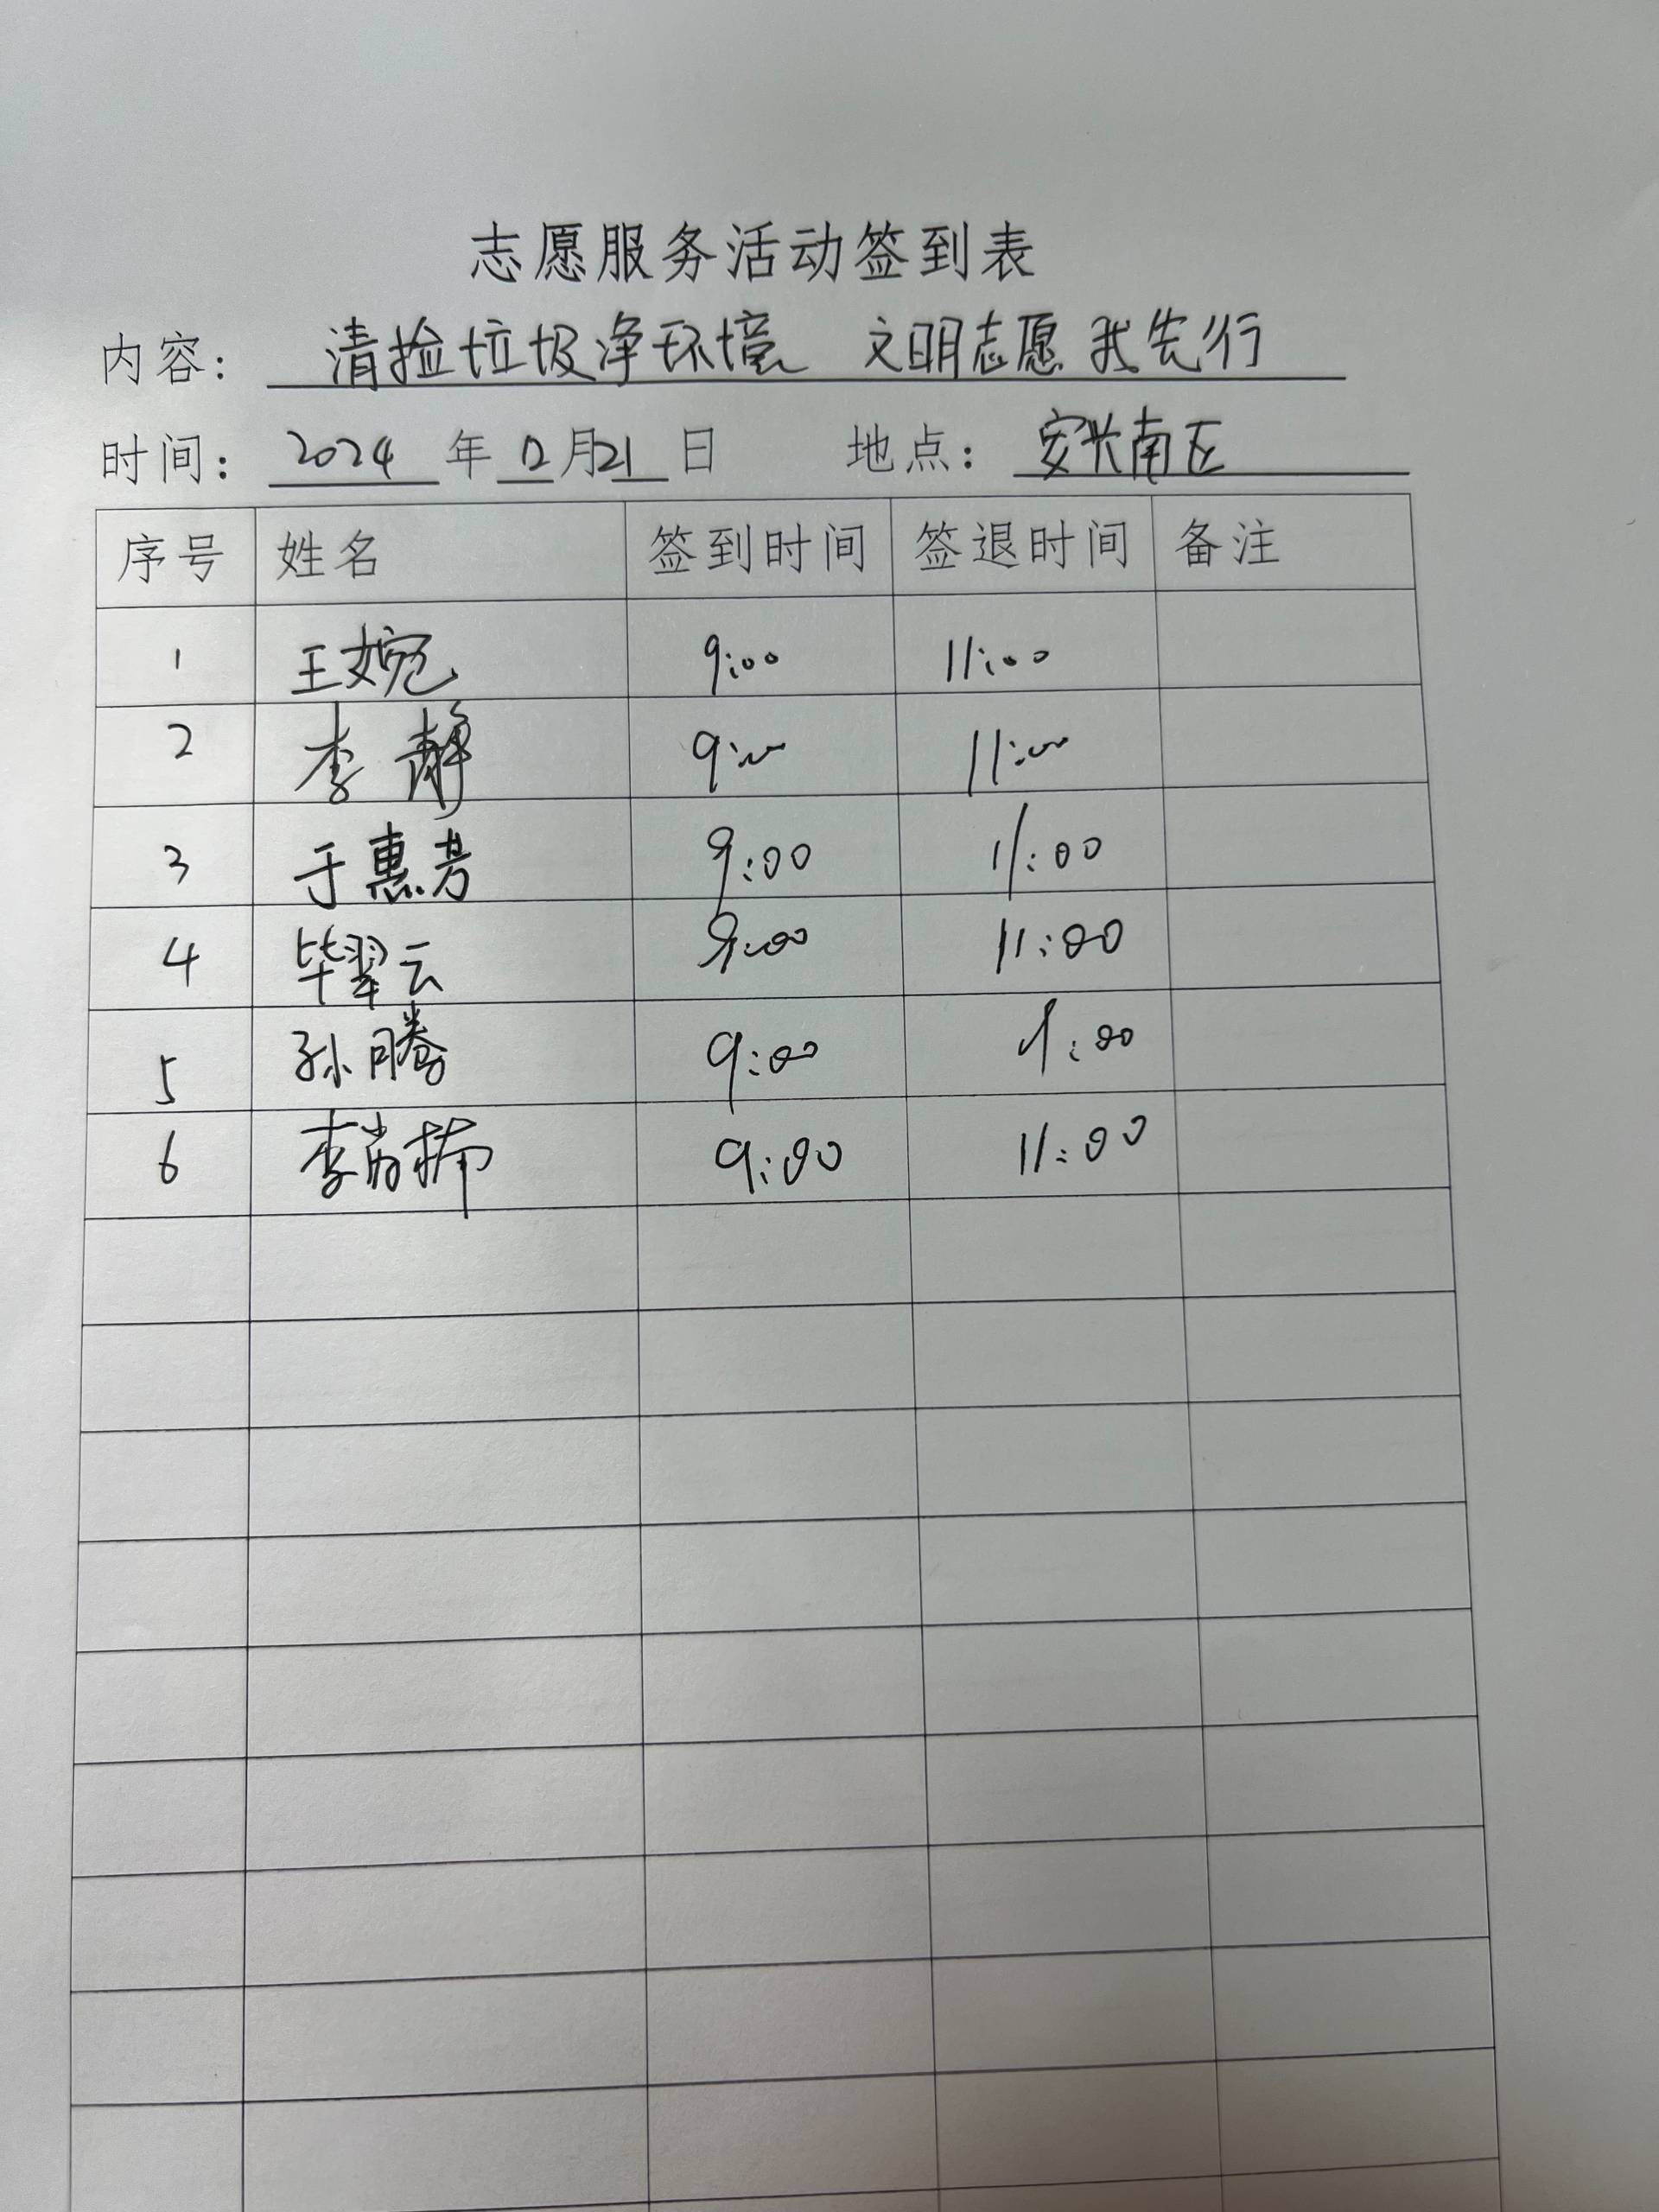 志愿服务活动签到表
内容: 清捡垃圾净环境 文明志愿我先行
时间: 2024 年 12月21日 地点: 安兴南区
序号 姓名 签到时间 签退时间 备注
1 王婉 9:00 11:00
2 李静 9:00 11:00
3 于惠芳 9:00 11:00
4 毕翠云 9:00 11:00
5 孙腾 9:00 :00
6 李 9:00 11:00